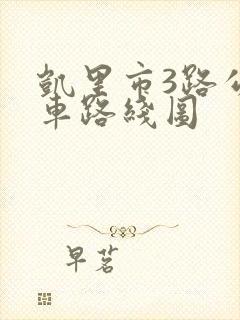 凱里市3路公
車路綫圖
早茗